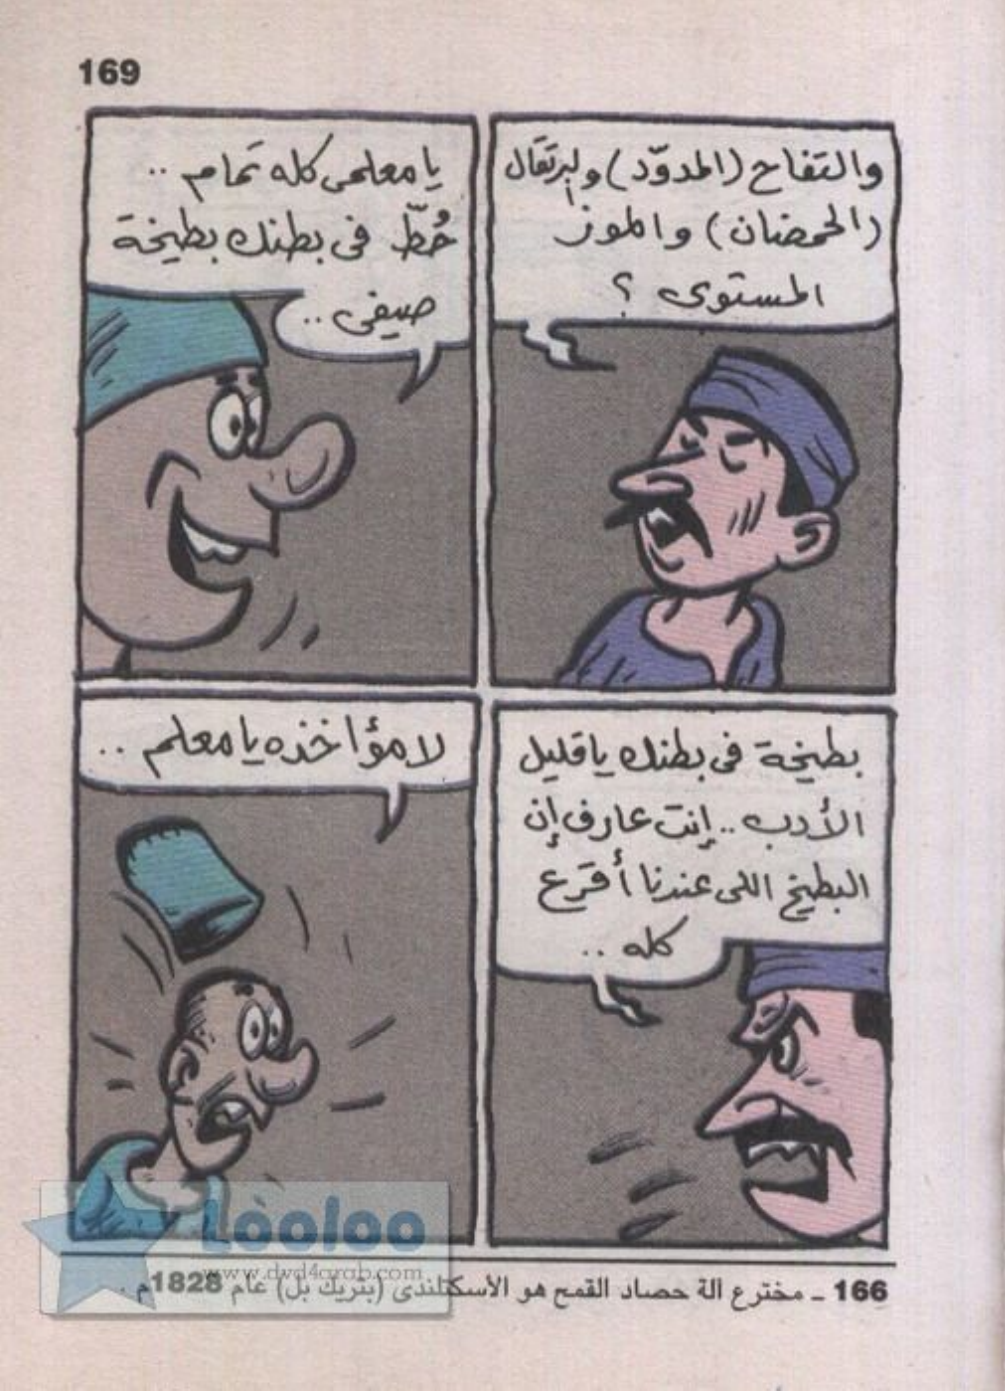 169
والتفاح (المدوّد) والبرتقال
(الحمضان) والموز
المستوى ؟
يا معلمى كله تمام ..
حُطّ فى بطنك بطيخة
صيفى ..
بطيخة فى بطنك يا قليل
الأدب .. إنت عارف إن
البطيخ اللى عندنا أقرع
كله ..
لا مؤاخذه يا معلم ..
166 ـ مخترع آلة حصاد القمح هو الأسكتلندى (بتريك بل) عام 1828م .
Looloo
www.dvd4arab.com